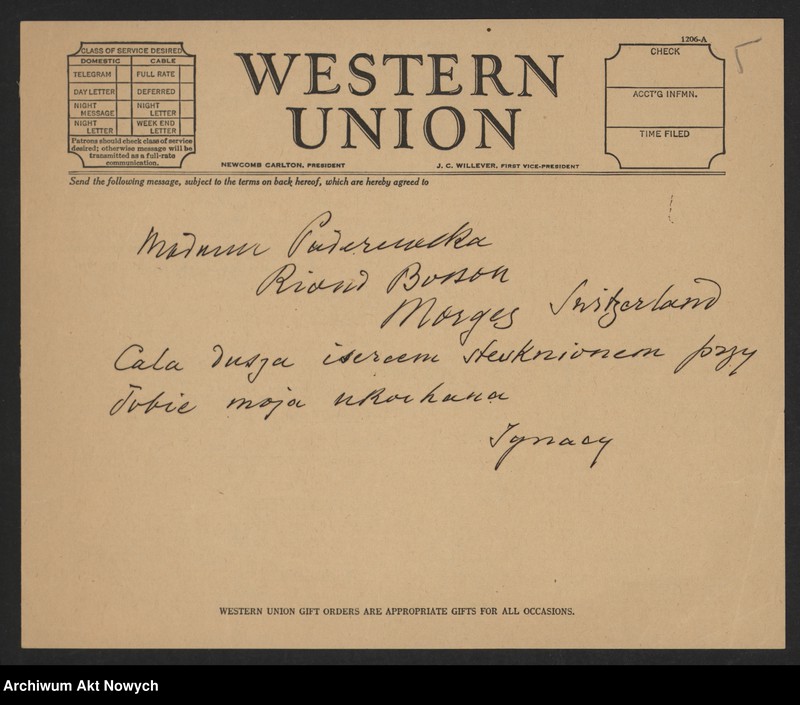 1206-A
CLASS OF SERVICE DESIRED
DOMESTIC CABLE
TELEGRAM FULL RATE
DAY LETTER DEFERRED
NIGHT MESSAGE NIGHT LETTER
NIGHT LETTER WEEK END LETTER
Patrons should check class of service
desired; otherwise message will be
transmitted as a full-rate
communication.
WESTERN
UNION
NEWCOMB CARLTON, PRESIDENT J. C. WILLEVER, FIRST VICE-PRESIDENT
CHECK
ACCT'G INFMN.
TIME FILED
5
Send the following message, subject to the terms on back hereof, which are hereby agreed to
Madame Paderewska
Riond Bosson
Morges Switzerland
Cala dusza isercem stesknionem przy
Tobie moja ukochana
Ignacy
WESTERN UNION GIFT ORDERS ARE APPROPRIATE GIFTS FOR ALL OCCASIONS.
Archiwum Akt Nowych